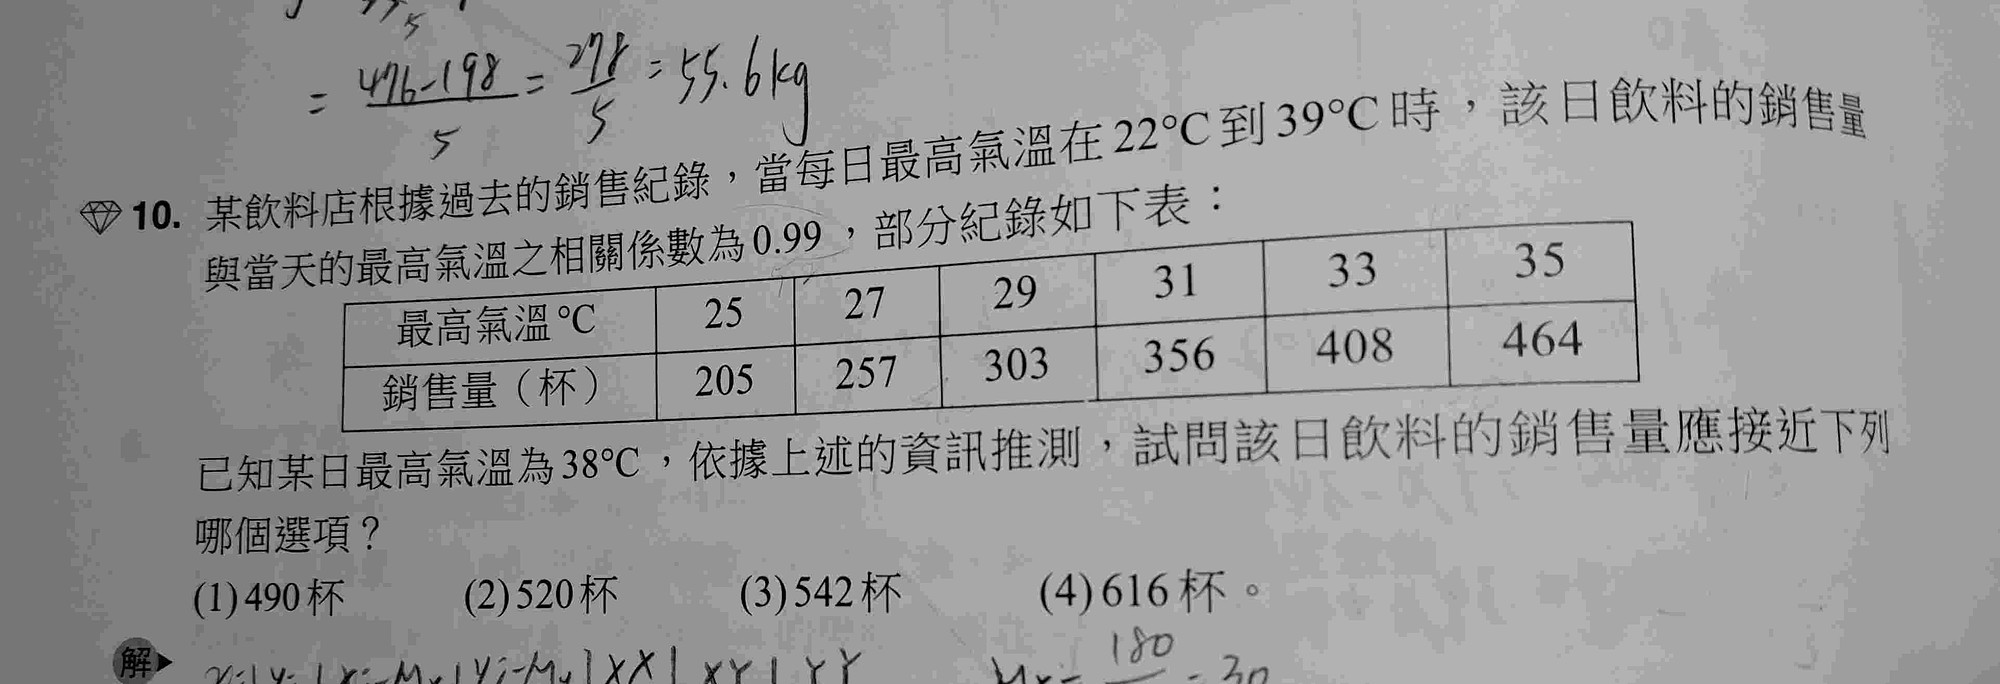 = 476-198/5 = 278/5 = 55.6kg
10. 某飲料店根據過去的銷售紀錄，當每日最高氣溫在22°C到39°C時，該日飲料的銷售量
與當天的最高氣溫之相關係數為0.99，部分紀錄如下表：
最高氣溫°C 25 27 29 31 33 35
銷售量（杯） 205 257 303 356 408 464
已知某日最高氣溫為38°C，依據上述的資訊推測，試問該日飲料的銷售量應接近下列
哪個選項？
(1)490杯 (2)520杯 (3)542杯 (4)616杯。
解
180